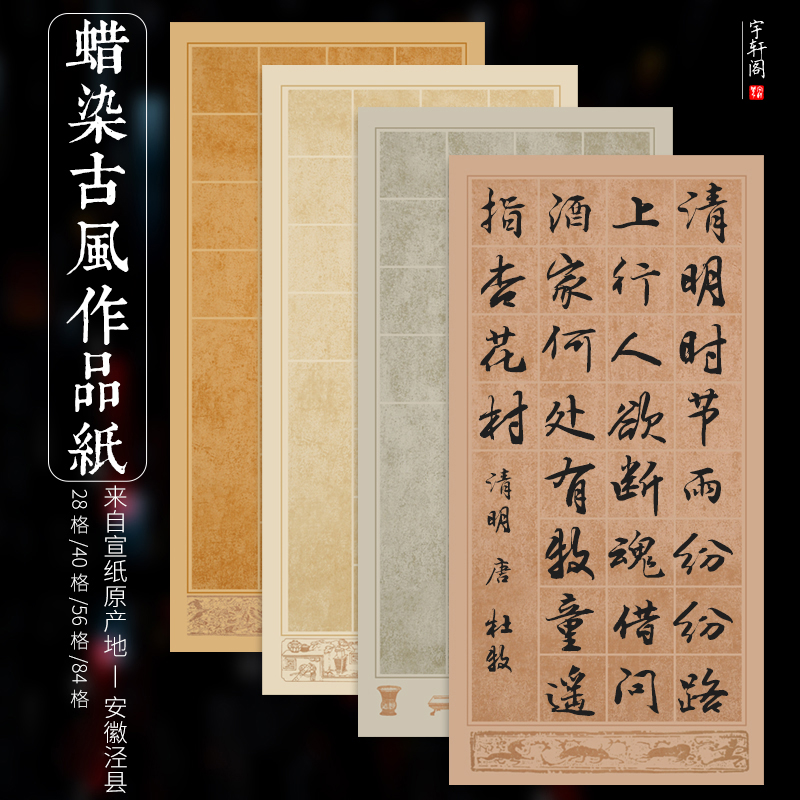 蜡染古風作品紙
来自宣纸原产地—安徽泾县
28格/40格/56格/84格
宇轩阁
清明时节雨纷纷路
上行人欲断魂借问
酒家何处有牧童遥
指杏花村
清明 唐 杜牧